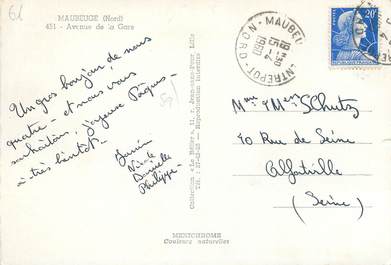 61
MAUBEUGE (Nord)
451 - Avenue de la Gare
Un gros bonjour de nous
quatre - et nous vous
souhaitons, joyeuse Pâques -
à très bientôt -
Nicole
Danielle
Philippe
Collection « La Belle », 11, r. Jean-sans-Peur Lille
Tél. : 57-42-25 - Reproduction interdite
MAUBEUGE ENTREPOT
NORD
18 H30
15-4
1960
20F
Mr & Mme Schutz
70 Rue de Seine
Alfortville
(Seine)
MEXICHROME
Couleurs naturelles